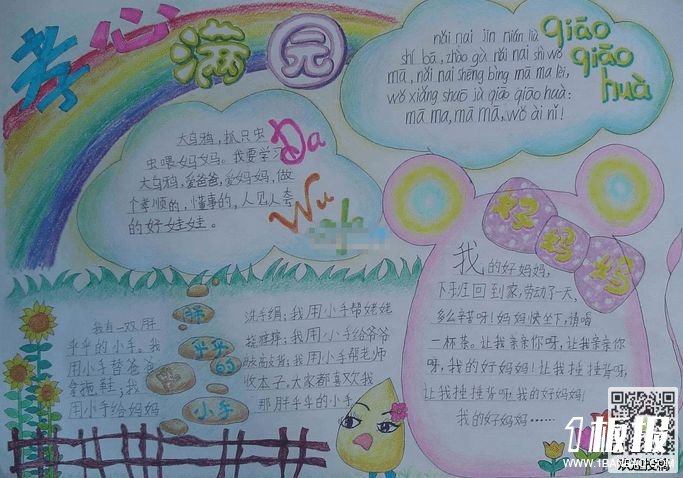 孝心满园
qiāo
qiāo
huà
nǎi nai jīn nián liù
shí bā, zhào gù nǎi nai shì wǒ
mā, nǎi nai shēng bìng mā ma lèi,
wǒ xiǎng shuō jù qiāo qiāo huà:
mā ma, mā mā, wǒ ài nǐ!
Da
Wu
大乌鸦,抓只虫
虫喂妈妈。我要学习
大乌鸦,爱爸爸,爱妈妈,做
个孝顺的,懂事的,人见人夸
的好娃娃。
好妈妈
我的好妈妈,
下班回到家,劳动了一天,
多么辛苦呀!妈妈快坐下,请喝
一杯茶。让我亲亲你呀,让我亲亲你
呀,我的好妈妈!让我捶捶背呀,
让我捶捶背呀,我的好妈妈!
我的好妈妈……
胖
乎乎
的
小手
我有一双胖
乎乎的小手。我
用小手替爸爸
拿拖鞋;我
用小手给妈妈
洗手绢;我用小手帮姥姥
挠痒痒;我用小手给爷爷
我用小手帮老师
收本子,大家都喜欢我
那胖乎乎的小手。
1板报
WWW.1BANBAO.COM
欢迎投稿